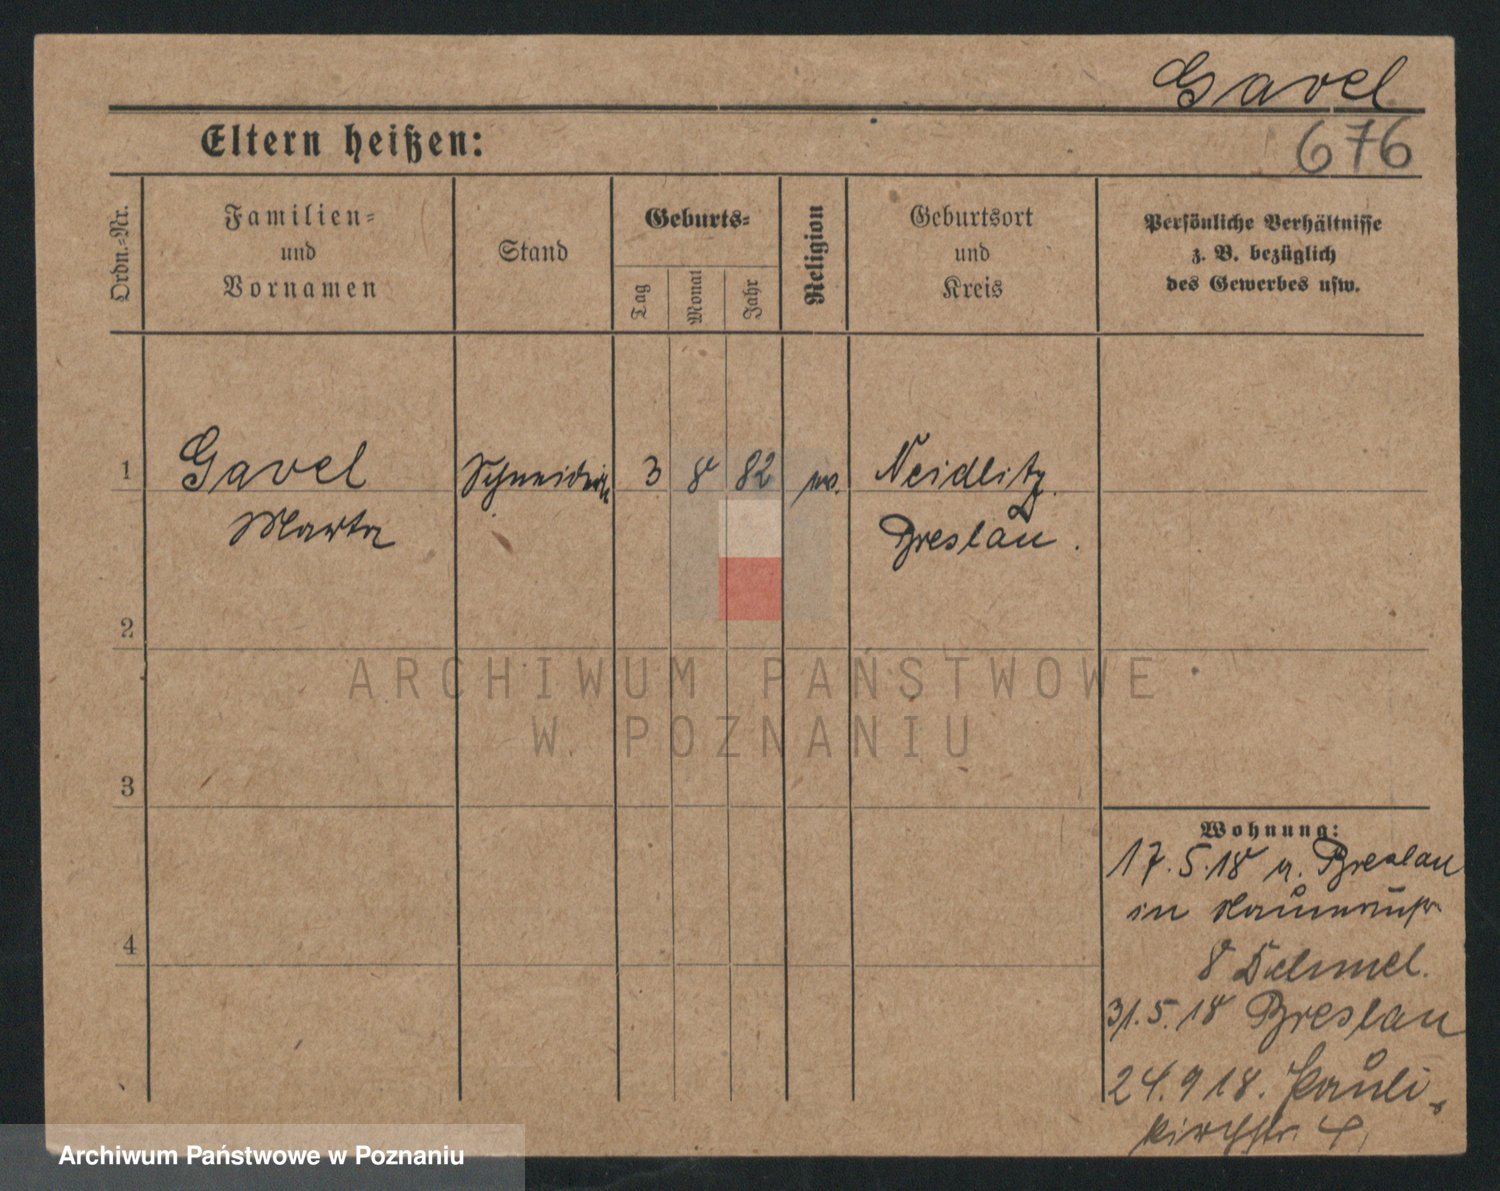 Gavel
676
Eltern heißen:
Ordn.-Nr.
Familien-
und
Vornamen
Stand
Geburts-
Tag
Monat
Jahr
Religion
Geburtsort
und
Kreis
Persönliche Verhältnisse
z. B. bezüglich
des Gewerbes usw.
1
Gavel
Schneiderin
3
8
82
ev.
Neidlitz
Marta
Breslau.
2
ARCHIWUM PAŃSTWOWE
W POZNANIU
3
Wohnung:
17.5.18 n. Breslau
in
4
8
31.5.18 Breslau
24.9.18. Pauli-
kirchstr. 4
Archiwum Państwowe w Poznaniu